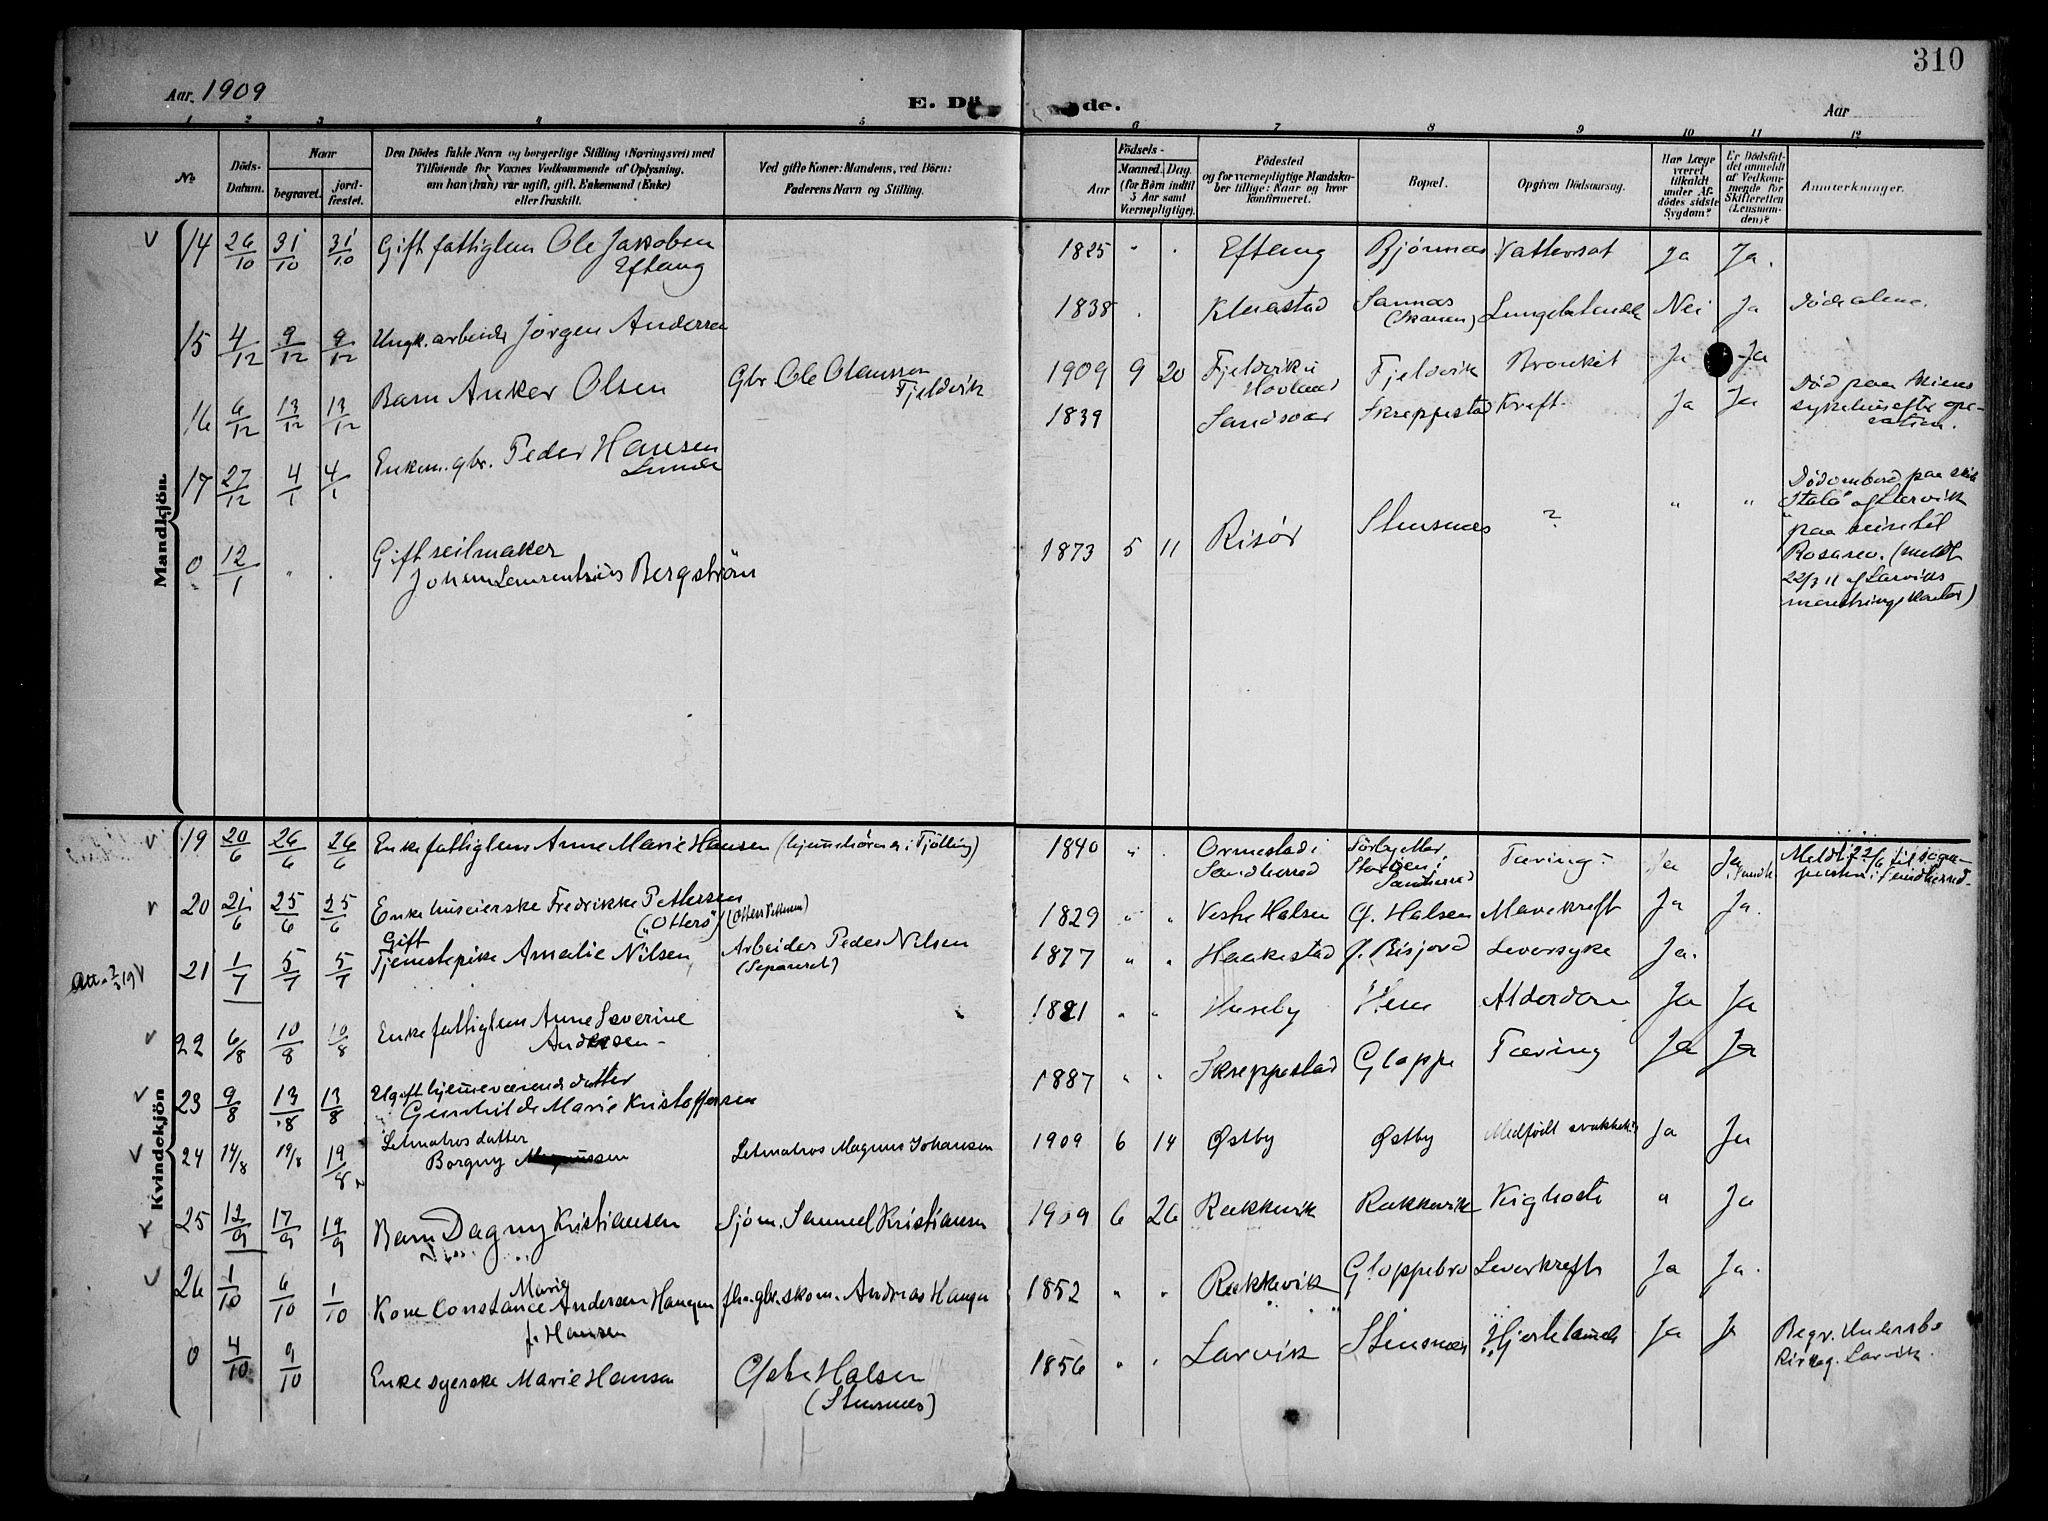 310
Aar 1909
E. Dö de.
Aar
1 2 3 4 5 6 7 8 9 10 11 12
No
Döds-Datum.
Naar
begravet.
jord-fæstet.
Den Dödes fulde Navn og borgerlige Stilling (Næringsvei) med
Tilföiende for Voxnes Vedkommende af Oplysning,
om han (hun) var ugift, gift, Enkemand (Enke)
eller fraskilt.
Ved gifte Koner: Mandens, ved Börn:
Faderens Navn og Stilling.
Födsels-
Aar
Maaned. Dag.
(for Börn indtil
5 Aar samt
Værnepligtige).
Födested
og for værnepligtige Mandska-
ber tillige: Naar og hvor
konfirmeret.
Bopæl.
Opgiven Dödsaarsag.
Har Læge
været
tilkaldt
under Af-
dödes sidste
Sygdom?
Er Dödsfal-
det anmeldt
af Vedkom-
mende for
Skifteretten
(Lensman-
den)?
Anmærkninger.
Mandkjön.
14 26/10 31/10 31/10 Gift fattiglem Ole Jakobsen
Eftang
1825 " . Eftang Bjønnes Vattersot Ja Ja.
15 4/12 9/12 9/12 Ungk. arbeider Jørgen Andersen
1838 . . Klaastad Sannes
(Skauen) Lungebetændels Nei Ja Døde alene.
16 6/12 13/12 13/12 Barn Anker Olsen Gbr. Ole Olaussen
Fjeldvik
1909 9 20 Fjeldvik i
Hovland Fjeldvik Bronkit Ja Ja
17 27/12 4/1 4/1 Enkem. gbr. Peder Hansen
1839 Sandsvær Skreppestad Kreft. Ja Ja Død paa Skiens
sykehus efter ope-
ration.
0 12/1 " . Gift seilmaker
Johan Laurentzius Bergstrøm
1873 5 11 Risør Stensnes ? " " Død ombord paa skib
af Larvik
paa reise til
Rosario. (meldt
22/3 11 af Larviks
mønstringskontor)
Kvindekjön
19 20/6 26/6 26/6 Enke fattiglem Anne Marie Hansen (hjemmehørende i Tjølling)
1840 " . Ormestad i
Sandherred Sørby
i
Sandherred Tæring Ja Ja Meldt 22/6 til sogne-
presten i Sandherred
20 21/6 25/6 25/6 Enke huseierske Fredrikke Pettersen
("Otterø") (Otter Pettersen)
1829 " " Vestre Halsen Ø. Halsen Mavekreft Ja Ja.
21 1/7 5/7 5/7 Gift
Tjenestepike Amalie Nilsen Arbeider Peder Nilsen
(Separeret)
1877 " " Haakestad Ø. Bisjord Leversyke Ja.
22 6/8 10/8 10/8 Enke fattiglem Anne Severine
Andersen
1821 " " Huseby Hem Alderdom Ja Ja
23 9/8 13/8 13/8 Ugift hjemmeværende datter
Gunhilde Marie Kristoffersen
1887 " . Skreppestad Gloppe Tæring Ja Ja
24 14/8 19/8 19/8 Letmatros datter
Borgny Magnussen Letmatros Magnus Johansen
1909 6 14 Østby Østby Medfødt svakhet Ja Ja
25 12/9 17/9 19/9 Barn Dagny Kristiansen Sjøm. Samuel Kristiansen
1909 6 26 Rakkevik Rakkevik Kighoste " Ja
26 1/10 6/10 1/10 Marie
Kone Constance Andersen Haugen
f. Hansen
fh. gbr. skom. Andreas Haugen
1852 " . Rakkevik Gloppebro Leverkreft Ja Ja.
0 4/10 9/10 Enke syerske Marie Hansen Østre Halsen
(Stensnes)
1856 " . Larvik Stensnes Hjertelamelse Ja J Begr. Undersbo
Kirkeg. Larvik.